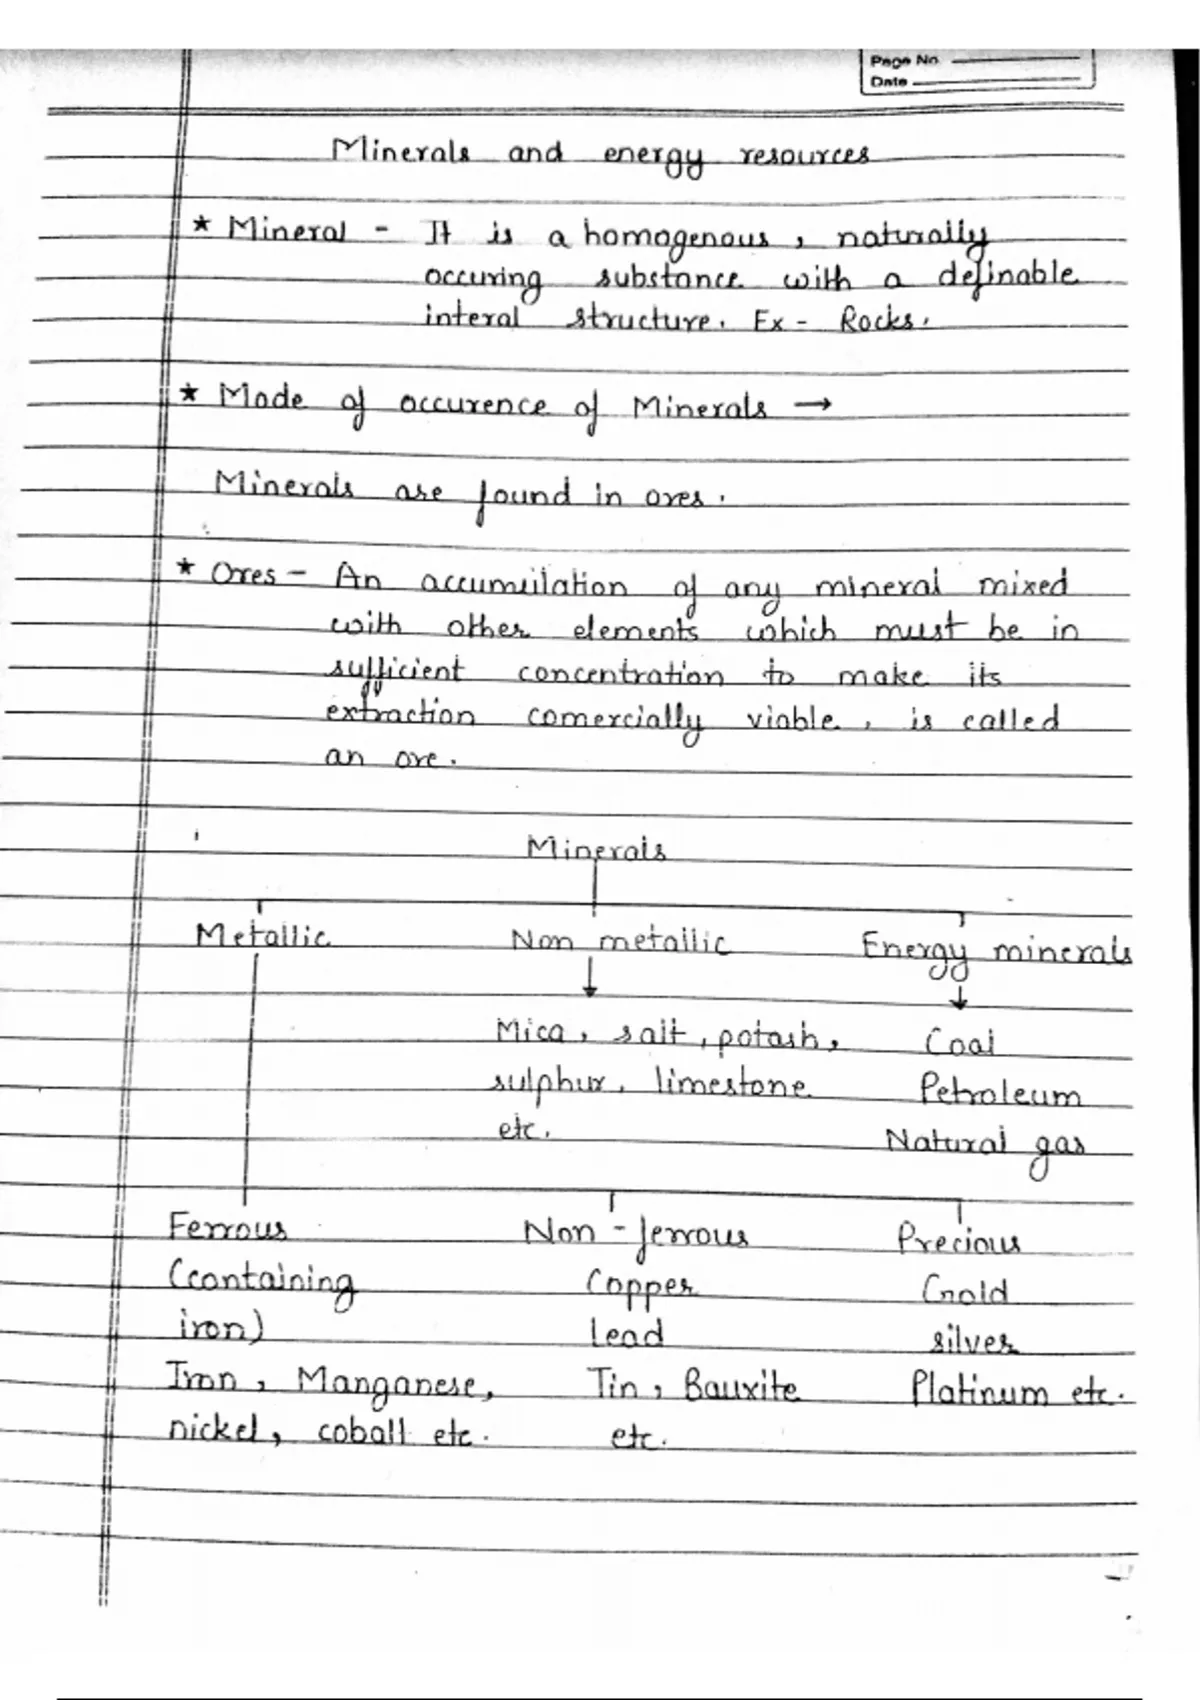 Page No.
Date
Minerals and energy resources
★ Mineral - It is a homogenous, naturally
occuring substance with a definable
interal structure. Ex - Rocks.
★ Mode of occurence of Minerals →
Minerals are found in ores.
★ Ores - An accumulation of any mineral mixed
with other elements which must be in
sufficient concentration to make its
extraction comercially viable, is called
an ore.
Minerals
Metallic Non metallic Energy minerals
Mica, salt, potash, Coal
sulphur, limestone Petroleum
etc. Natural gas
Ferrous Non-ferrous Precious
(containing Copper Gold
iron) lead silver
Iron, Manganese, Tin, Bauxite Platinum etc.
nickel, cobalt etc. etc.